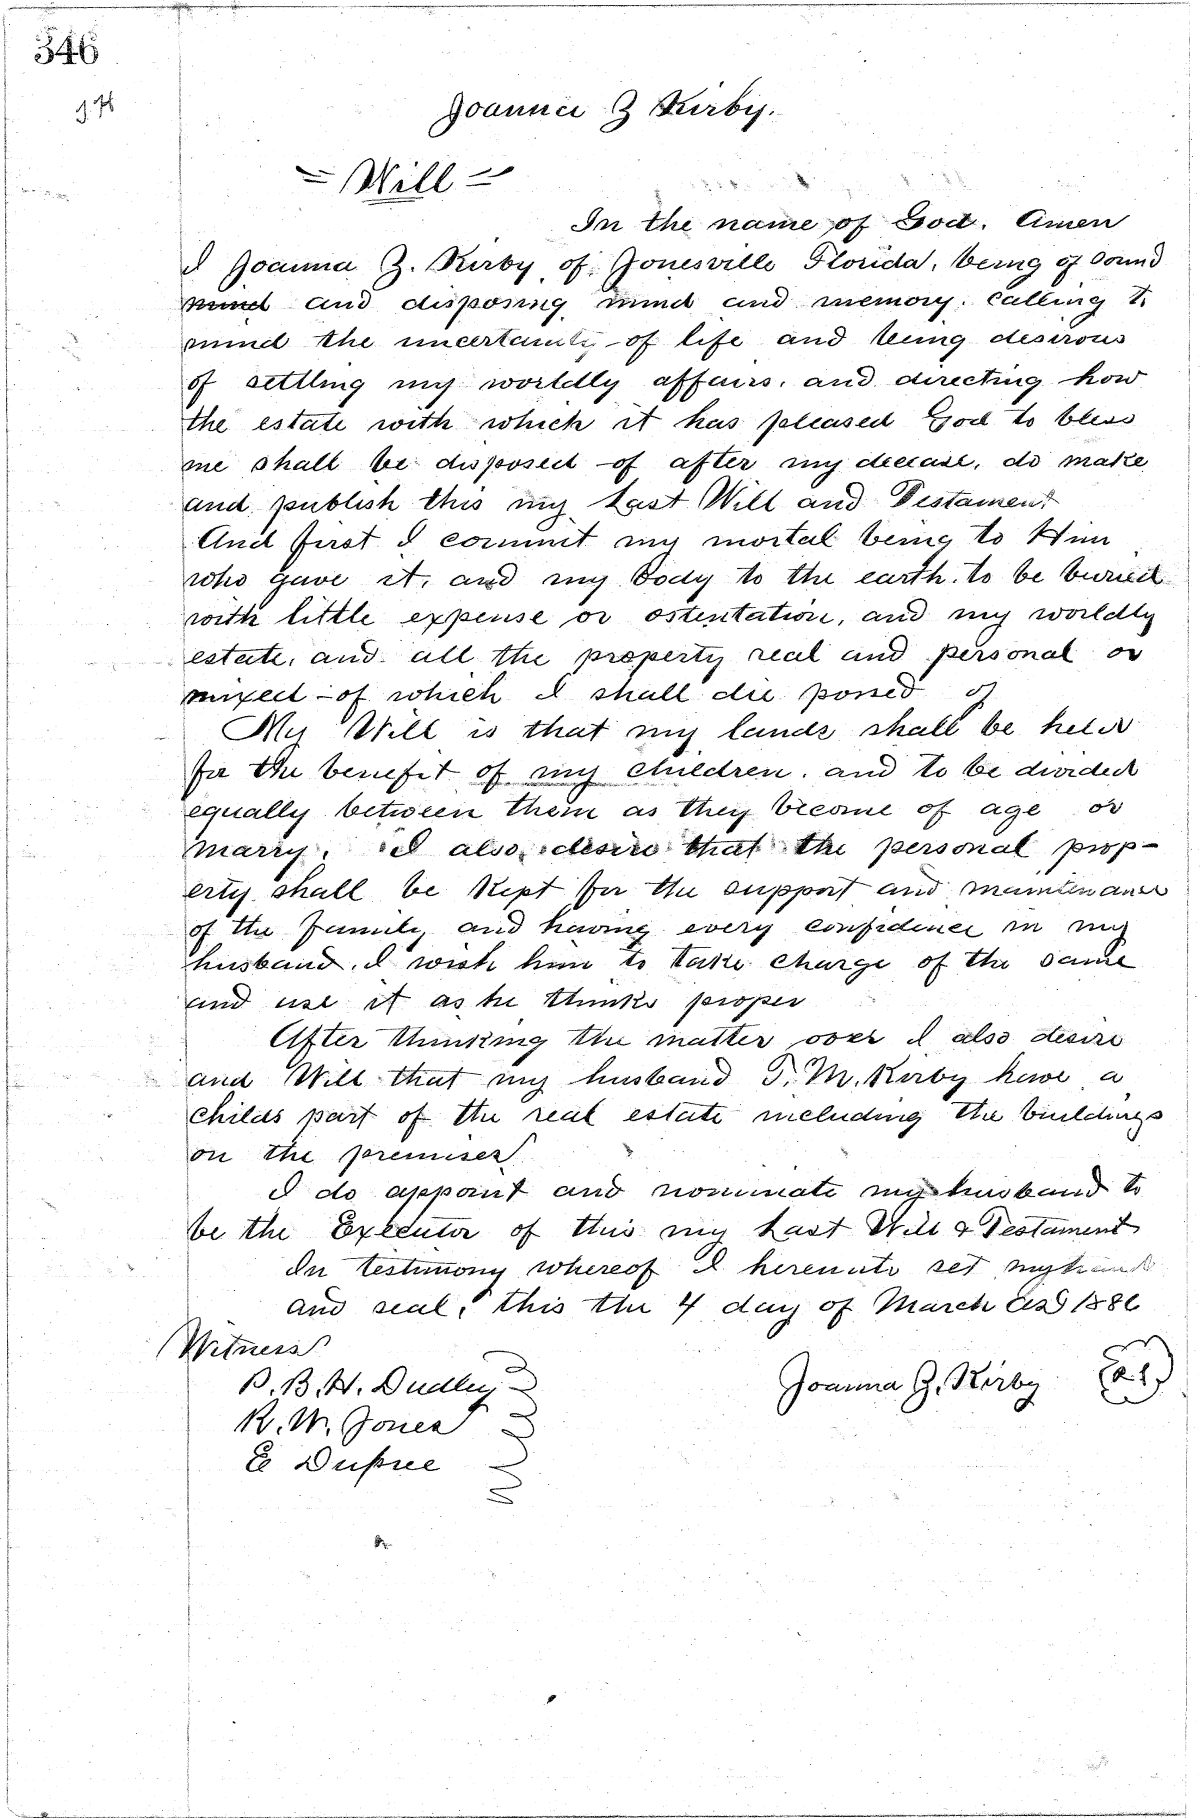 346
Joanna Z Kirby.
= Will =
In the name of God. Amen
I Joanna Z. Kirby of Jonesville Florida, being of sound
mind and disposing mind and memory. calling to
mind the uncertainty of life and being desirous
of settling my worldly affairs. and directing how
the estate with which it has pleased God to bless
me shall be disposed of after my decease, do make
and publish this my Last Will and Testament
And first I commit my mortal being to Him
who gave it, and my body to the earth. to be buried
with little expense or ostentation, and my worldly
estate, and all the property real and personal or
mixed - of which I shall die possed of
My Will is that my lands shall be held
for the benefit of my children. and to be divided
equally between them as they become of age or
marry. I also desire that the personal prop-
erty shall be kept for the support and maintenance
of the family and having every confidence in my
husband. I wish him to take charge of the same
and use it as he thinks proper
After thinking the matter over I also desire
and Will that my husband T. M. Kirby have a
childs part of the real estate including the buildings
on the premises
I do appoint and nominate my husband to
be the Executor of this my Last Will & Testament
In testimony whereof I hereunto set my hand
and seal, this the 4 day of March AD 1886
Witness
P. B. H. Dudley
R. W. Jones
E Dupree
Joanna Z. Kirby